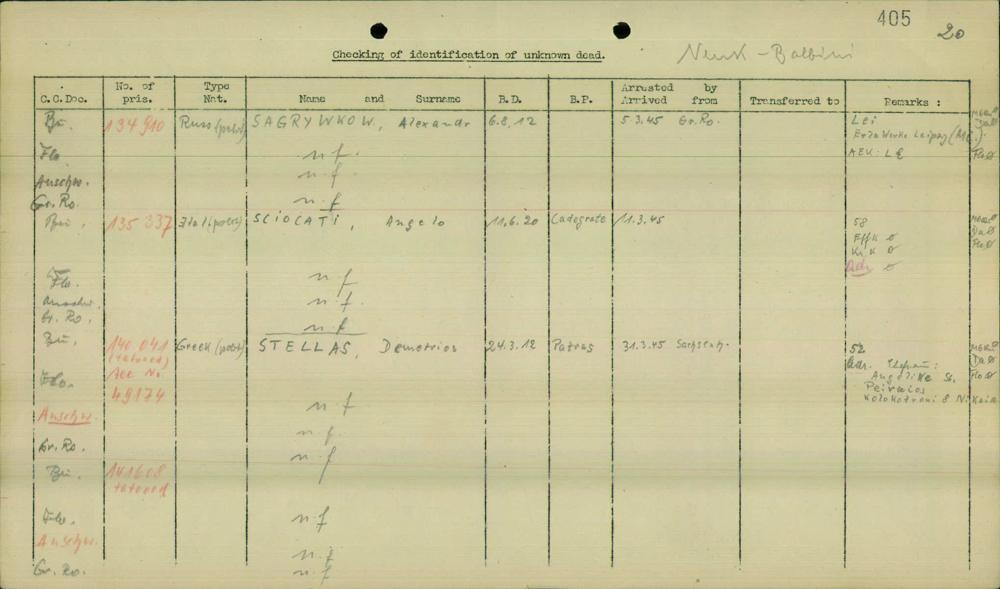 405
20
Checking of identification of unknown dead.
Neuk - Balbini
C.C.Doc. No. of pris. Type Nat. Name and Surname B.D. B.P. Arrested by Arrived from Transferred to Remarks :
Bu. 134 910 Russ (polit) SAGRYWKOW, Alexandr 6.8.12 5.3.45 Gr.Ro. Lei
Erla Werke Leipzig
Flo. n.f. AEK: LE
Auschw. n.f.
Gr. Ro. n.f
Bu. 135 337 Ital (polit) SCIOCATI, Angelo 11.6.20 Cadograte 11.3.45 58
Effk o
Kr.K o
Adr o
Flo. n.f
Auschw. n.f.
Gr. Ro. n.f
Bu. 140 041 Greek (polit) STELLAS, Demetrios 24.3.12 Patras 31.3.45 Sachsenh. 52
(tatooed) Adr. Ehefrau:
Flo. Acc No Angelike St.
49174 Peiraios
n.f Kolokotroni 8 Nikaia
Auschw. n.f.
Gr. Ro. n.f
Bu. 141608
tatooed
Flo. n.f
Auschw. n.f
Gr. Ro. n.f